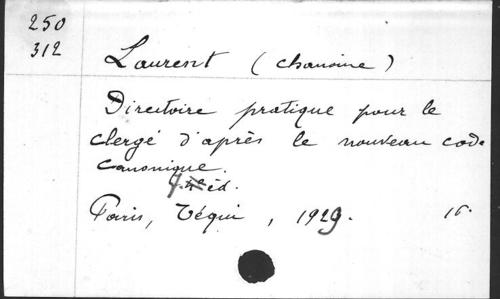 250
312
Laurent (chanoine)
Directoire pratique pour le
clergé d'après le nouveau code
canonique.
éd.
Paris, Téqui, 1929. 16.